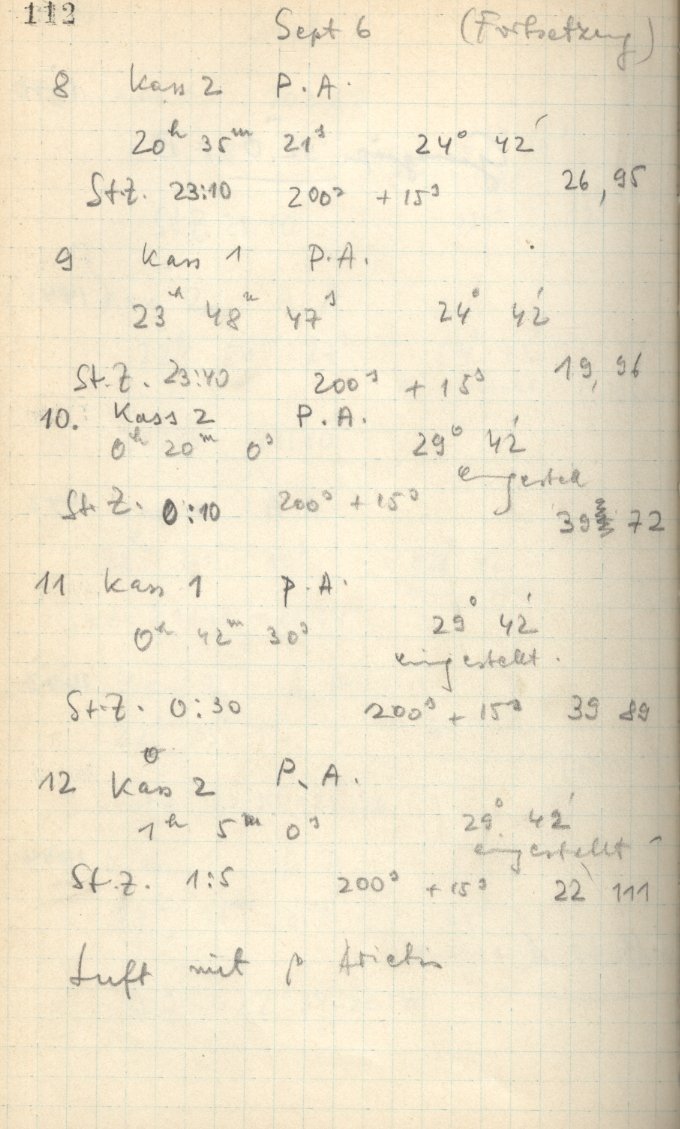 112
Sept 6 (Fortsetzung)
8 Kass 2 P.A.
20h 35m 21s 24° 42'
St.Z. 23:10 200s + 15s 26, 95
9 Kass 1 P.A.
23h 48m 47s 24° 42'
St.Z. 23:40 200s + 15s 19, 96
10. Kass 2 P.A.
0h 20m 0s 29° 42'
eingestell
St.Z. 0:10 200s + 15s 39 72
11 Kass 1 P.A.
0h 42m 30s 29° 42'
eingestellt.
St.Z. 0:30 200s + 15s 39 89
0
12 Kass 2 P.A.
1h 5m 0s 29° 42'
eingestellt
St.Z. 1:5 200s + 15s 22 111
Luft mit Arietis